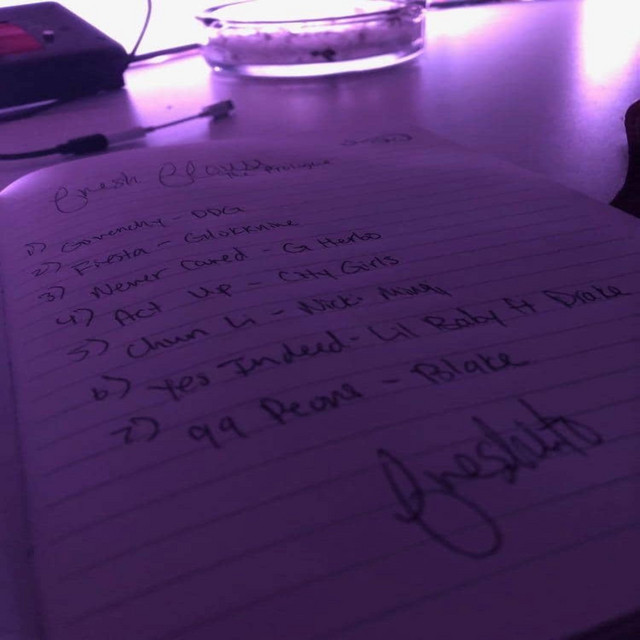 Fresh
1) Givenchy - DDG
2) Fiesta - Glokknine
3) Never Cared - G Herbo
4) Act Up - City Girls
5) Chun Li - Nicki Minaj
6) Yes Indeed - Lil Baby ft Drake
7) 99 - Blake